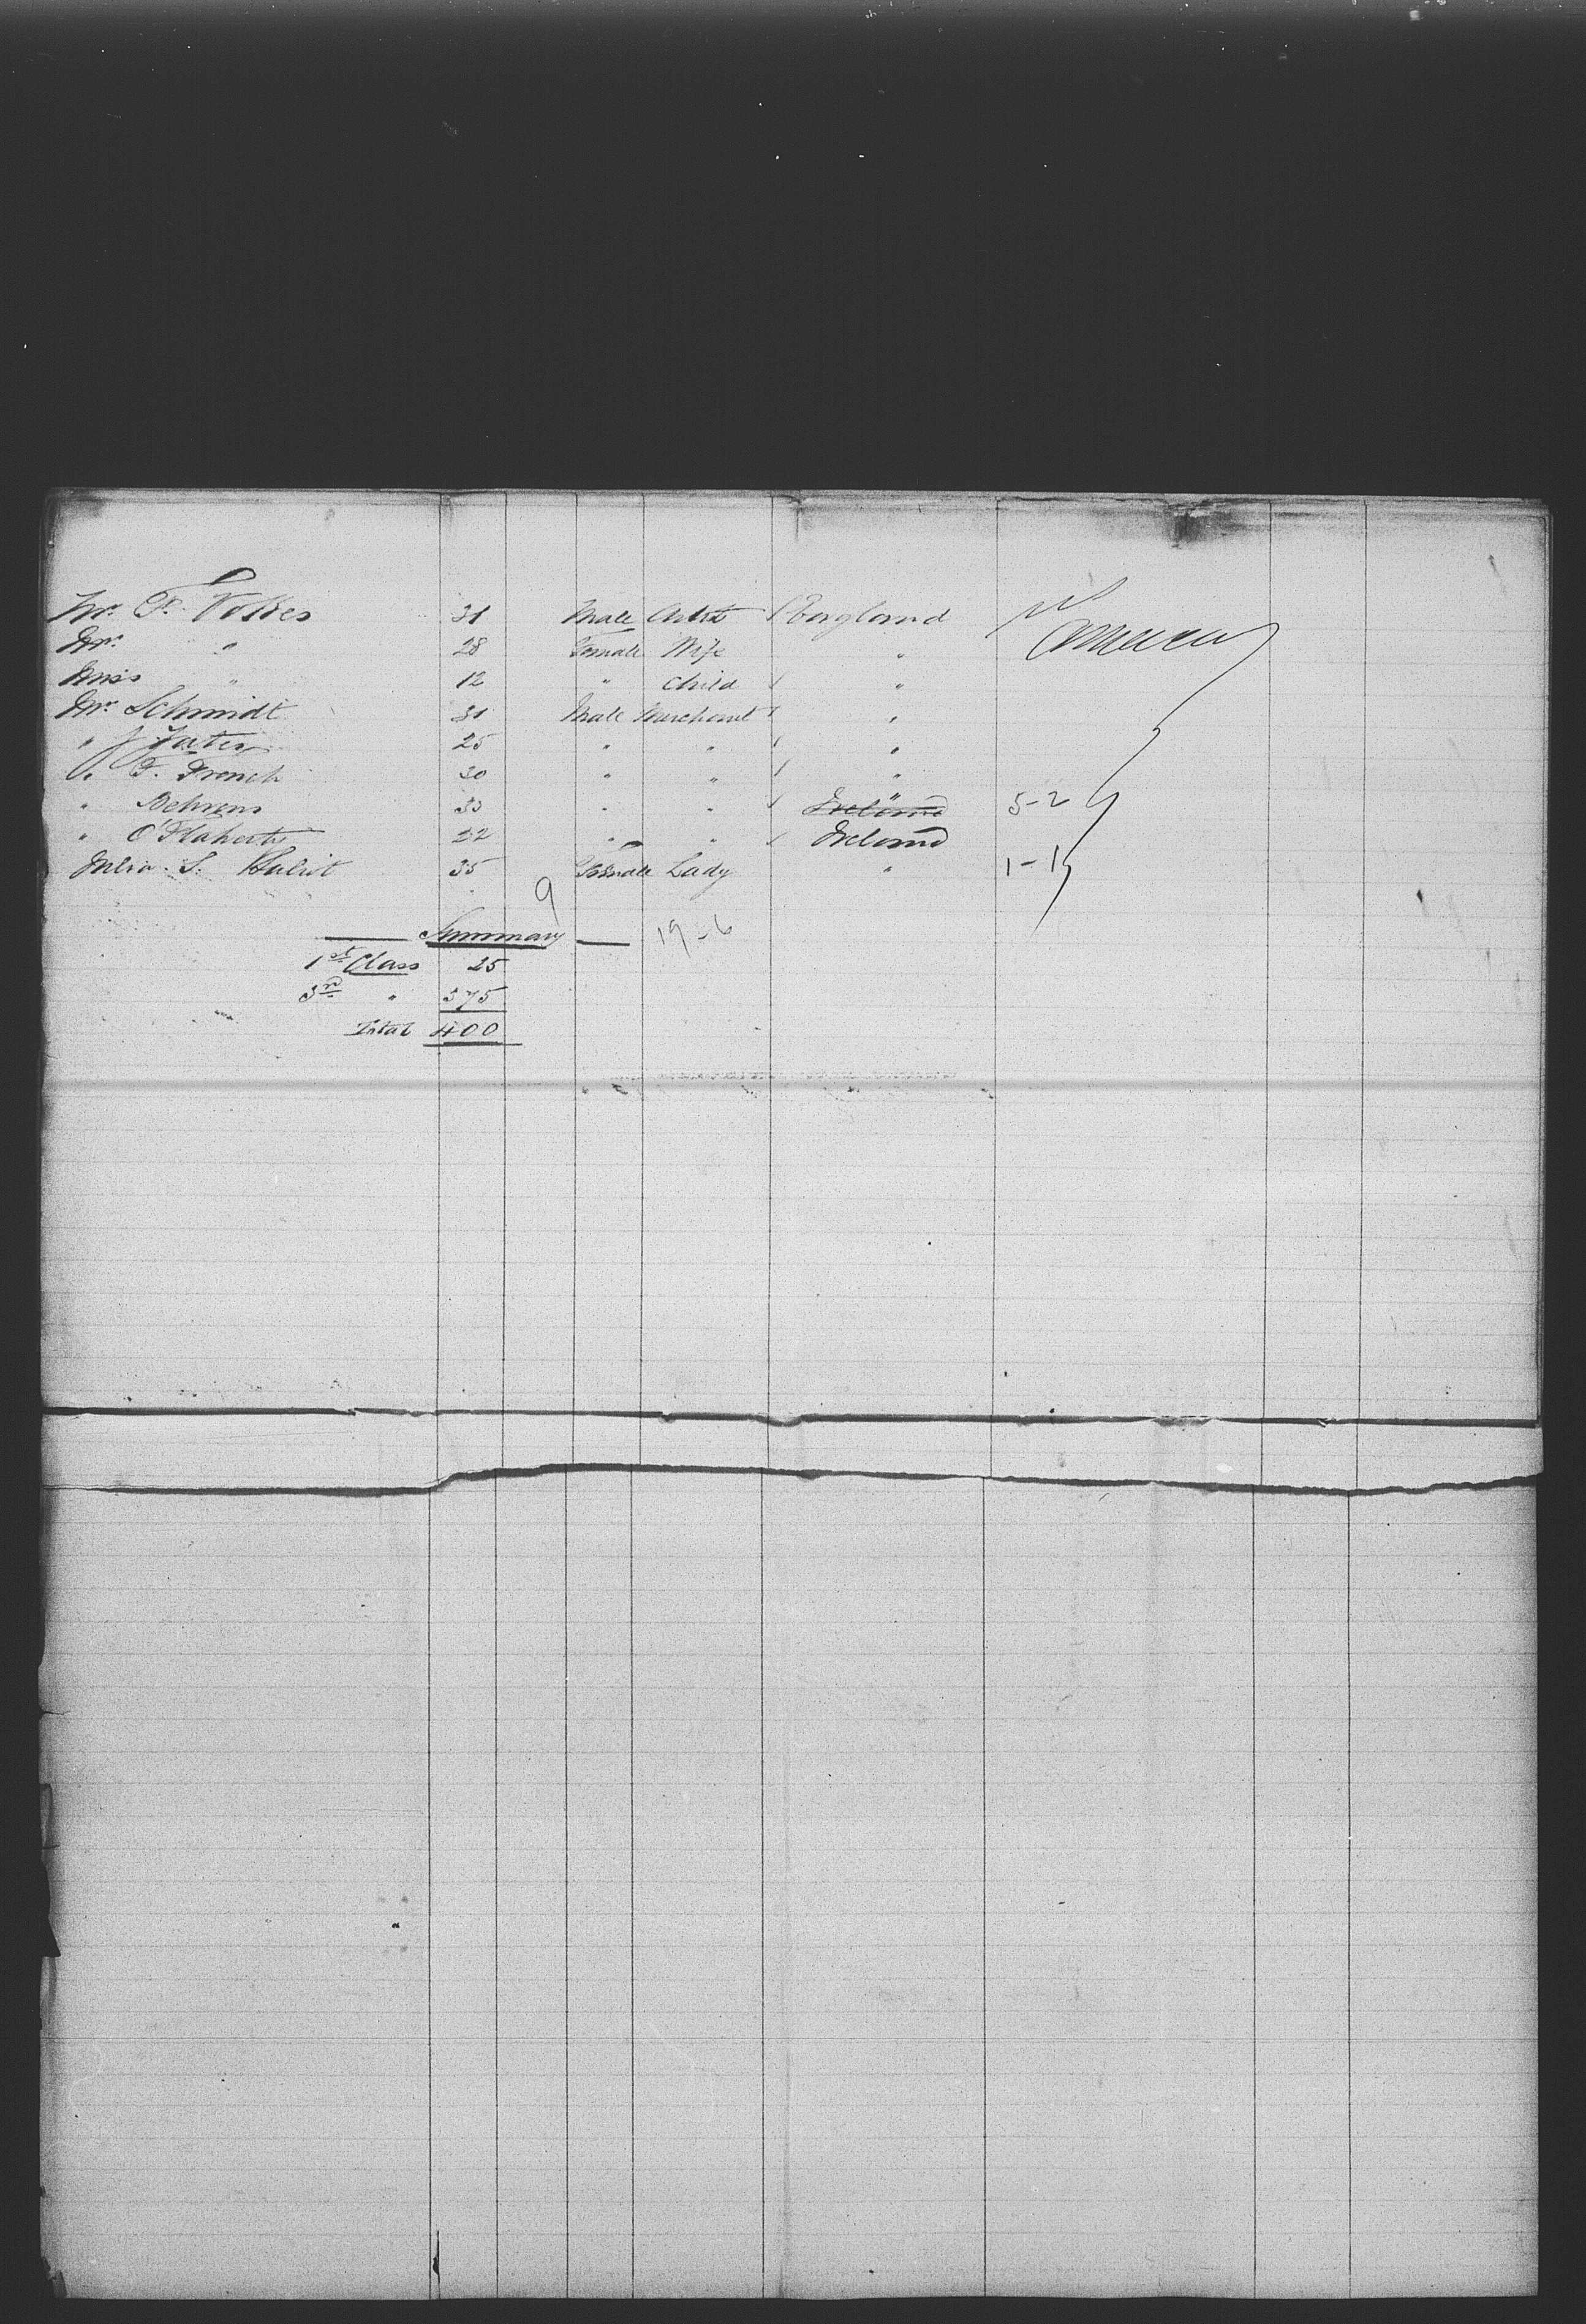 Mr. F. Vokes 31 Male Artist England
Mrs. " 28 Female Wife " America
Miss " 12 " Child "
Mr. Schmidt 31 Male Merchant "
" J Yates 25 " " "
" F. French 30 " " "
" Behrens 33 " " " Ireland 5-2
" O'Flaherty 22 " " Ireland
Julia S. 35 Female Lady " 1-1
9
Summary 19-6
1st Class 25
3rd " 375
Total 400